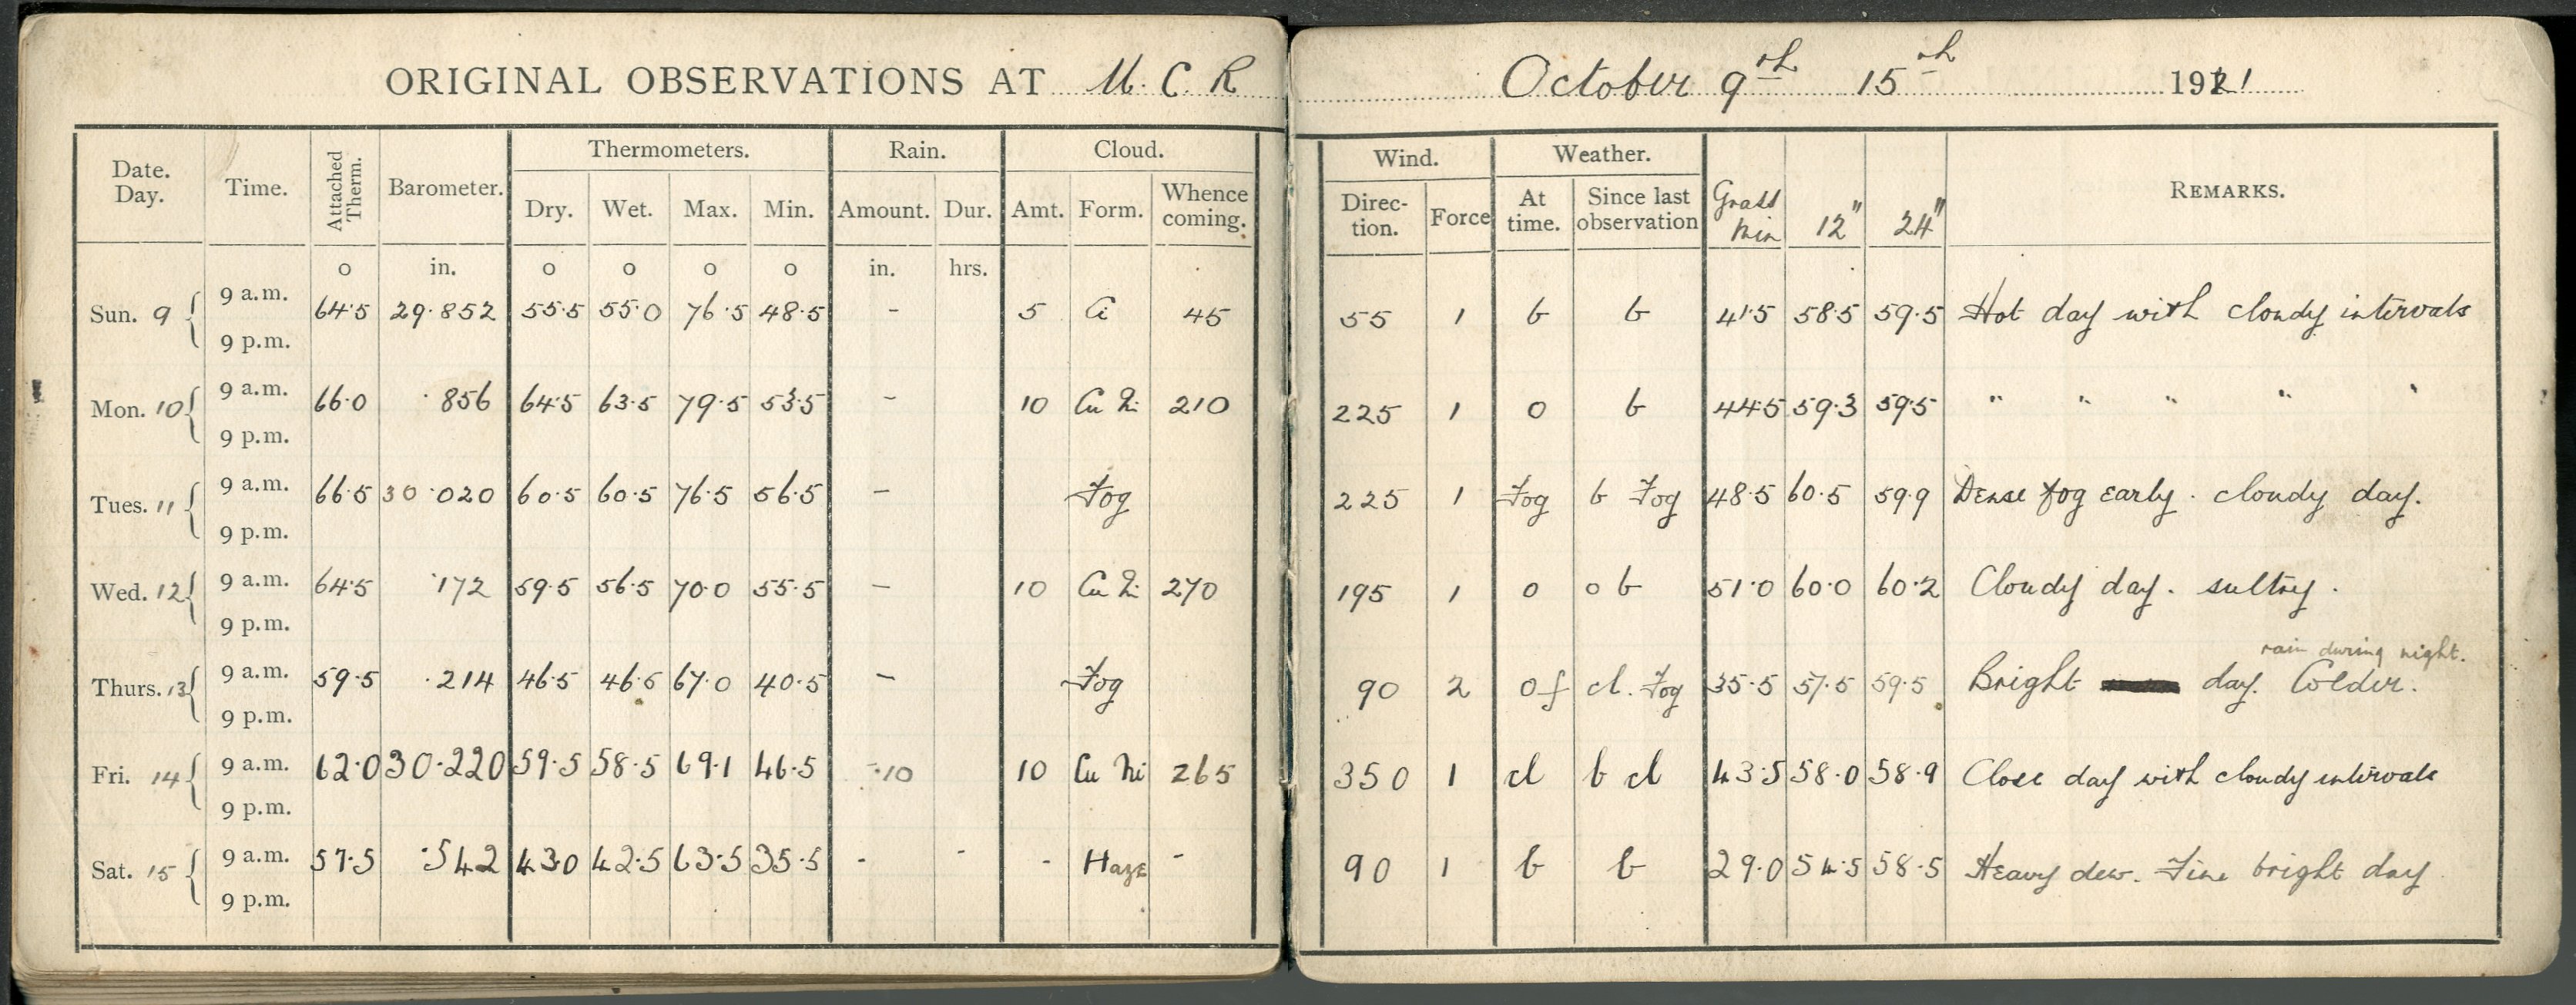 ORIGINAL OBSERVATIONS AT M. C. R October 9th 15th 1921
Date. Day. Time. Attached Therm. Barometer. Thermometers. Rain. Cloud. Wind. Weather. Grass min 12" 24" REMARKS.
Dry. Wet. Max. Min. Amount. Dur. Amt. Form. Whence coming. Direc-tion. Force At time. Since last observation
o in. o o o o in. hrs.
Sun. 9 9 a.m. 64.5 29.852 55.5 55.0 76.5 48.5 - 5 Ci 45 55 1 b b 41.5 58.5 59.5 Hot day with cloudy intervals
9 p.m.
Mon. 10 9 a.m. 66.0 .856 64.5 63.5 79.5 53.5 - 10 Cu Ni 210 225 1 o b 44.5 59.3 59.5 " " " " "
9 p.m.
Tues. 11 9 a.m. 66.5 30.020 60.5 60.5 76.5 56.5 - Fog 225 1 Fog b Fog 48.5 60.5 59.9 Dense fog early. cloudy day.
9 p.m.
Wed. 12 9 a.m. 64.5 .172 59.5 56.5 70.0 55.5 - 10 Cu Ni 270 195 1 o o b 51.0 60.0 60.2 Cloudy day. sultry.
9 p.m.
rain during night.
Thurs. 13 9 a.m. 59.5 .214 46.5 46.5 67.0 40.5 - Fog 90 2 of cl. Fog 35.5 57.5 59.5 Bright day. Colder.
9 p.m.
Fri. 14 9 a.m. 62.0 30.220 59.5 58.5 69.1 46.5 .10 10 Cu Ni 265 350 1 cl b cl 43.5 58.0 58.9 Close day with cloudy intervals
9 p.m.
Sat. 15 9 a.m. 57.5 .542 43.0 42.5 63.5 35.5 - - - Haze - 90 1 b b 29.0 54.5 58.5 Heavy dew. Fine bright day
9 p.m.